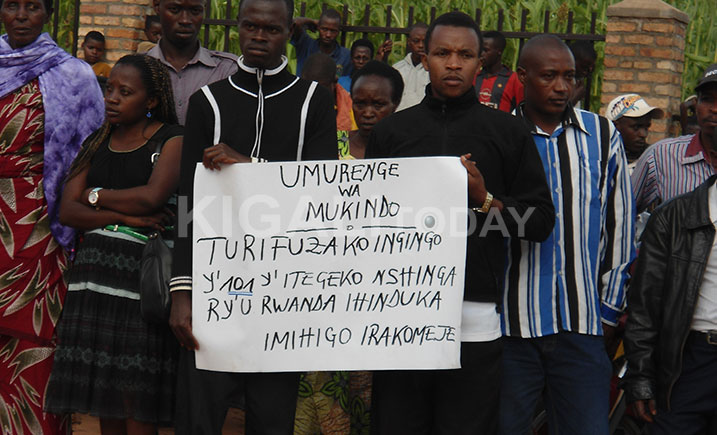 UMURENGE
WA
MUKINDO
TURIFUZA KO INGINGO
Y'101 Y' ITEGEKO NSHINGA
RY'U RWANDA IHINDUKA
IMIHIGO IRAKOMEJE
KIGALI TODAY